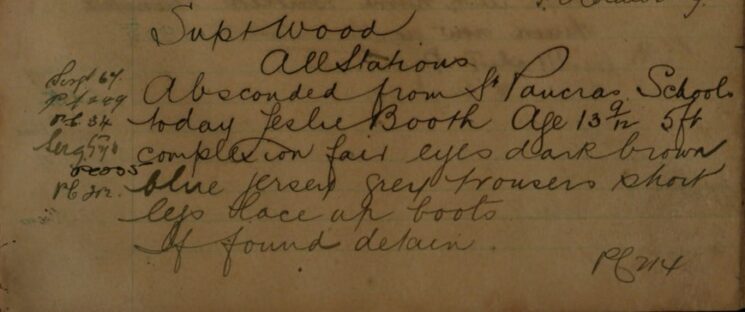 Supt Wood
All Stations
Absconded from St Pancras Schools
today Leslie Booth Age 13 9/12 5ft
complexion fair eyes dark brown
blue jersey grey trousers short
legs lace up boots
If found detain.
PC 214
Sergt 67
PC 249
PC 34
Serg
PC 202